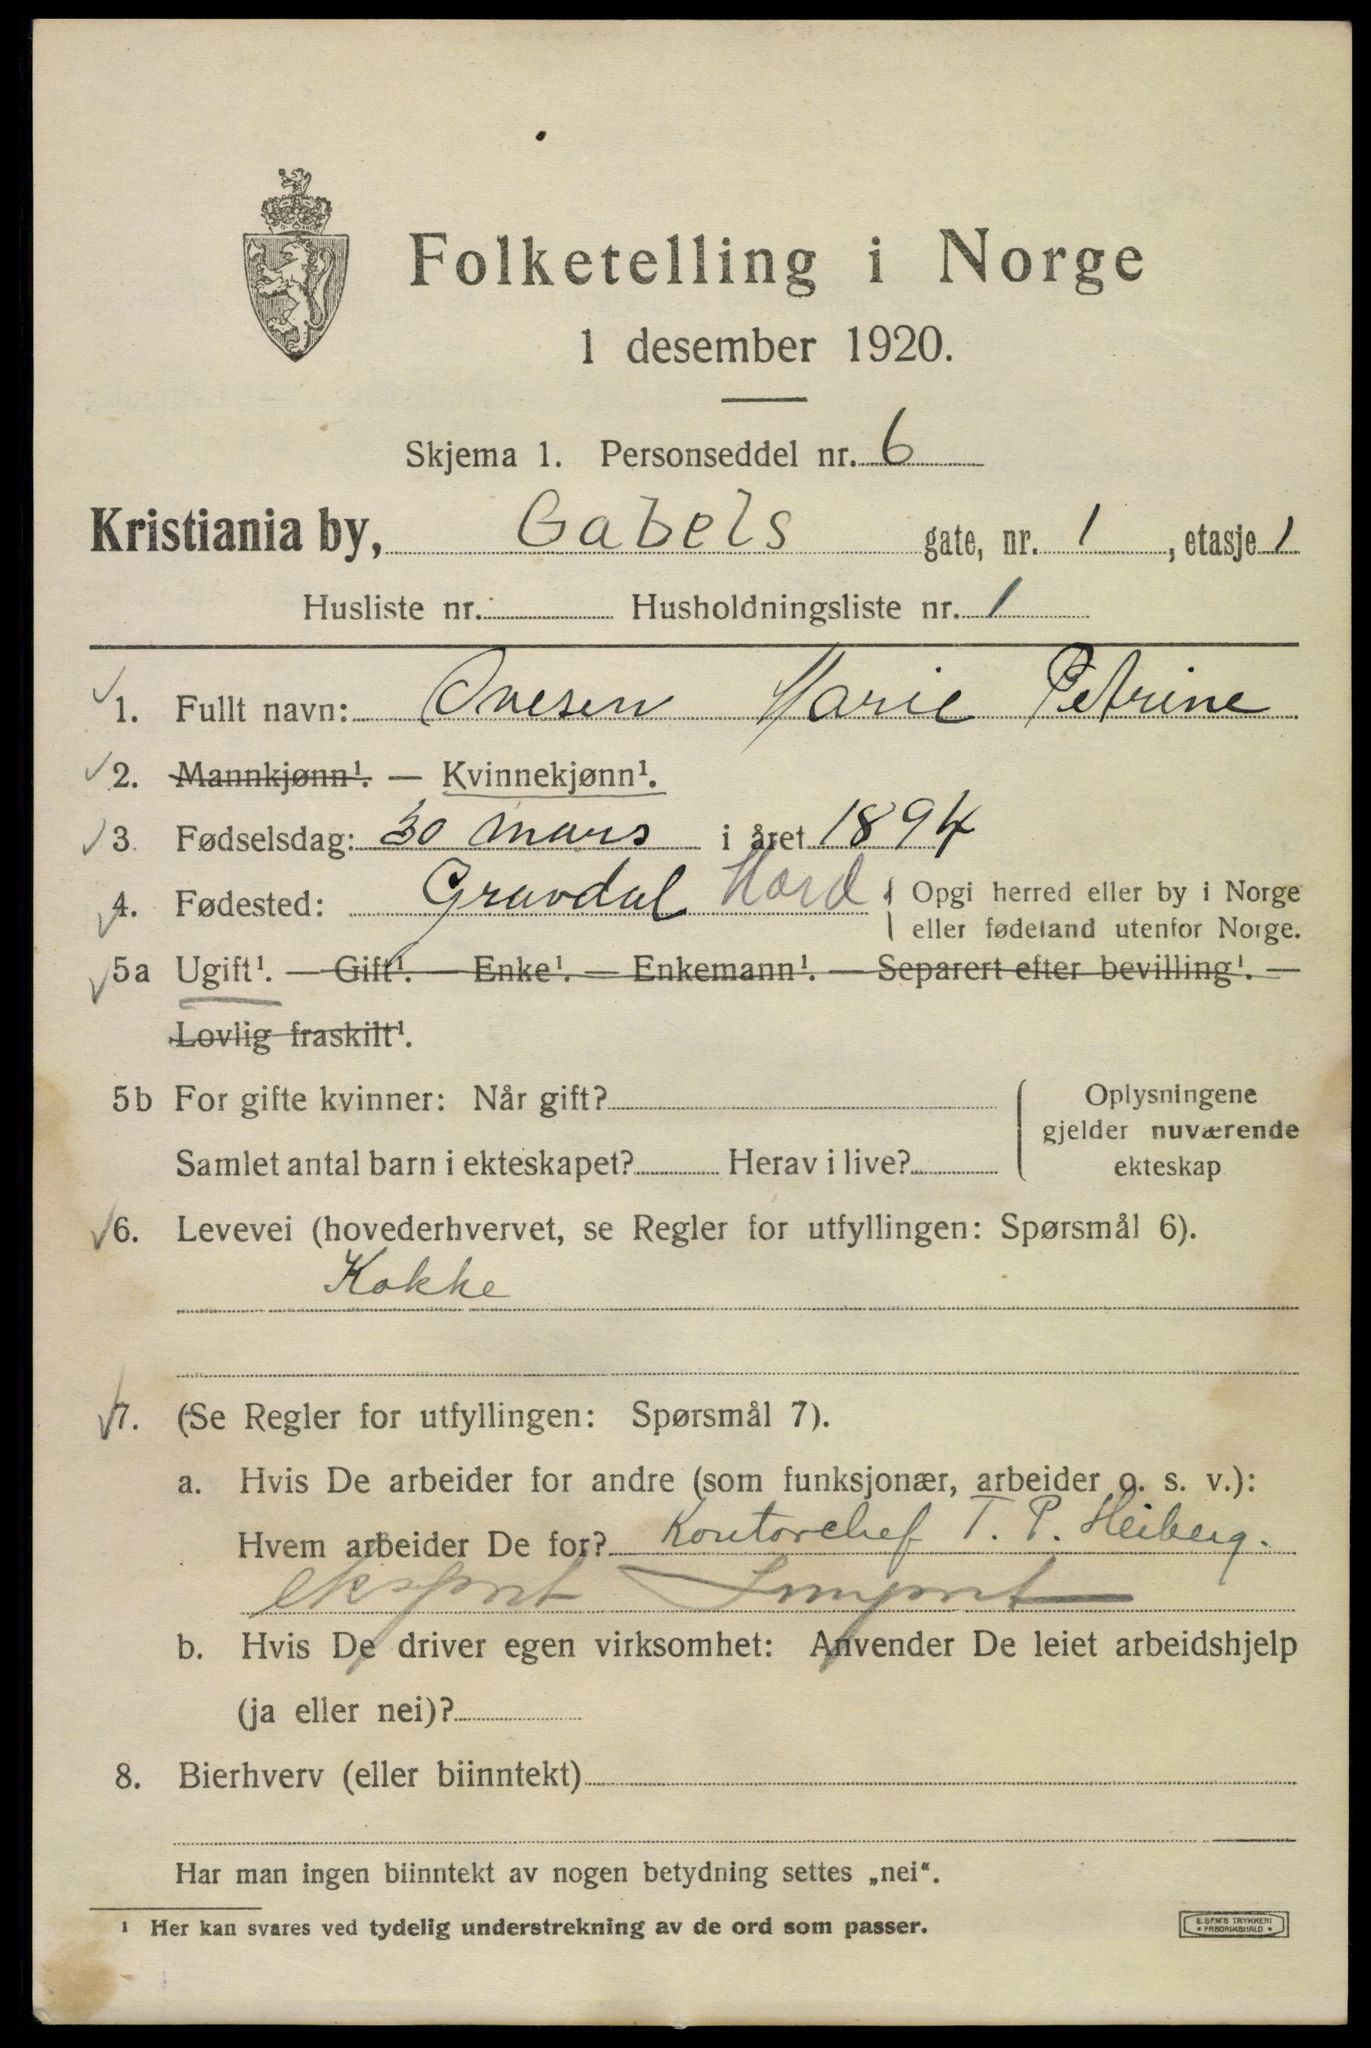 Folketelling i Norge
1 desember 1920.
Skjema 1. Personseddel nr. 6
Kristiania by, Gabels gate, nr. 1, etasje 1
Husliste nr. Husholdningsliste nr. 1
1. Fullt navn: Ovesen Marie Petrine
2. Mannkjønn¹. — Kvinnekjønn¹.
3. Fødselsdag: 30 mars i året 1894
4. Fødested: Gravdal Hord { Opgi herred eller by i Norge
eller fødeland utenfor Norge.
5a Ugift¹. — Gift¹. — Enke¹. — Enkemann¹. — Separert efter bevilling¹. —
Lovlig fraskilt¹.
5b For gifte kvinner: Når gift? { Oplysningene
gjelder nuværende
Samlet antal barn i ekteskapet? Herav i live? ekteskap
6. Levevei (hovederhvervet, se Regler for utfyllingen: Spørsmål 6).
Kokke
7. (Se Regler for utfyllingen: Spørsmål 7).
a. Hvis De arbeider for andre (som funksjonær, arbeider o. s. v.):
Hvem arbeider De for? Kontorchef T. P. Heiberg.
eksport Import
b. Hvis De driver egen virksomhet: Anvender De leiet arbeidshjelp
(ja eller nei)?
8. Bierhverv (eller biinntekt)
Har man ingen biinntekt av nogen betydning settes „nei“.
¹ Her kan svares ved tydelig understrekning av de ord som passer.
E. SEM'S TRYKKERI
• FREDRIKSHALD •